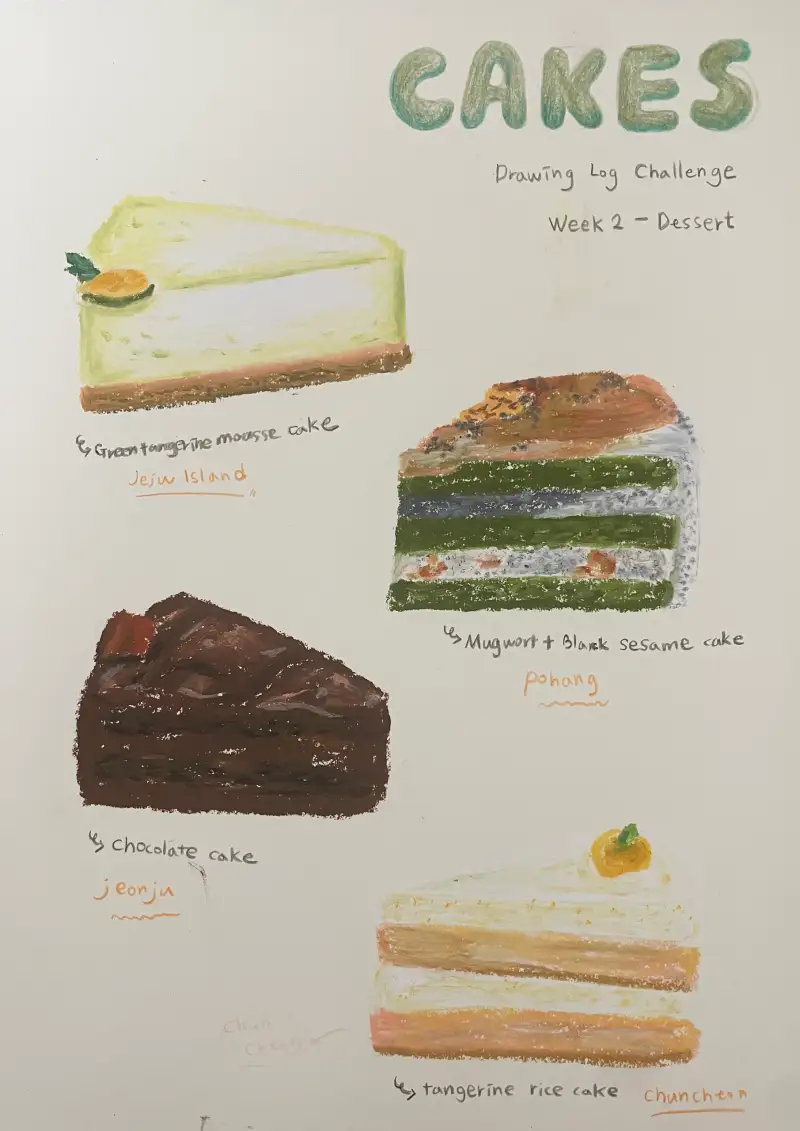 CAKES
Drawing Log Challenge
Week 2 - Dessert
Green tangerine mousse cake
Jeju Island
Mugwort + Black sesame cake
pohang
Chocolate cake
jeonju
tangerine rice cake chuncheon